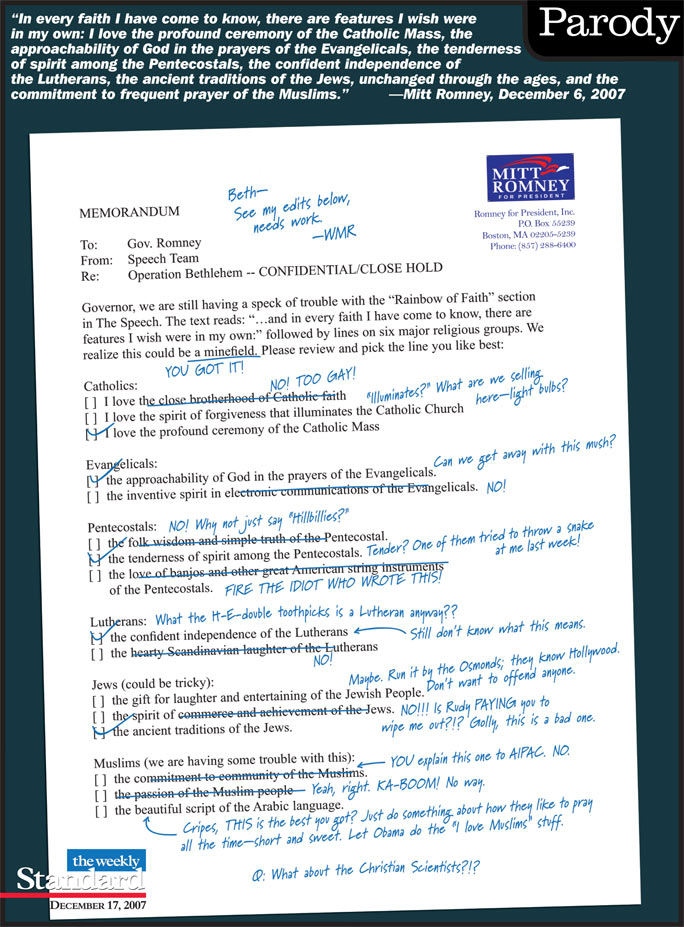 “In every faith I have come to know, there are features I wish were
in my own: I love the profound ceremony of the Catholic Mass, the
approachability of God in the prayers of the Evangelicals, the tenderness
of spirit among the Pentecostals, the confident independence of
the Lutherans, the ancient traditions of the Jews, unchanged through the ages, and the
commitment to frequent prayer of the Muslims.” —Mitt Romney, December 6, 2007
Parody
MITT
ROMNEY
FOR PRESIDENT
Romney for President, Inc.
P.O. Box 55239
Boston, MA 02205-5239
Phone: (857) 288-6400
Beth—
See my edits below,
needs work.
—WMR
MEMORANDUM
To: Gov. Romney
From: Speech Team
Re: Operation Bethlehem -- CONFIDENTIAL/CLOSE HOLD
Governor, we are still having a speck of trouble with the “Rainbow of Faith” section
in The Speech. The text reads: “…and in every faith I have come to know, there are
features I wish were in my own:” followed by lines on six major religious groups. We
realize this could be a minefield. Please review and pick the line you like best:
YOU GOT IT!
Catholics:
NO! TOO GAY!
[ ] I love the close brotherhood of Catholic faith
"Illuminates?" What are we selling
here—light bulbs?
[ ] I love the spirit of forgiveness that illuminates the Catholic Church
[ ] I love the profound ceremony of the Catholic Mass
Evangelicals:
Can we get away with this mush?
[ ] the approachability of God in the prayers of the Evangelicals.
[ ] the inventive spirit in electronic communications of the Evangelicals. NO!
Pentecostals: NO! Why not just say "Hillbillies?"
[ ] the folk wisdom and simple truth of the Pentecostal.
[ ] the tenderness of spirit among the Pentecostals. Tender? One of them tried to throw a snake
at me last week!
[ ] the love of banjos and other great American string instruments
of the Pentecostals. FIRE THE IDIOT WHO WROTE THIS!
Lutherans: What the H-E-double toothpicks is a Lutheran anyway??
[ ] the confident independence of the Lutherans Still don't know what this means.
[ ] the hearty Scandinavian laughter of the Lutherans
NO!
Jews (could be tricky):
Maybe. Run it by the Osmonds; they know Hollywood.
Don't want to offend anyone.
[ ] the gift for laughter and entertaining of the Jewish People.
[ ] the spirit of commerce and achievement of the Jews. NO!!! Is Rudy PAYING you to
wipe me out?!? Golly, this is a bad one.
[ ] the ancient traditions of the Jews.
Muslims (we are having some trouble with this): YOU explain this one to AIPAC. NO.
[ ] the commitment to community of the Muslims.
[ ] the passion of the Muslim people Yeah, right. KA-BOOM! No way.
[ ] the beautiful script of the Arabic language.
Cripes, THIS is the best you got? Just do something about how they like to pray
all the time—short and sweet. Let Obama do the "I love Muslims" stuff.
Q: What about the Christian Scientists?!?
the weekly
Standard
DECEMBER 17, 2007